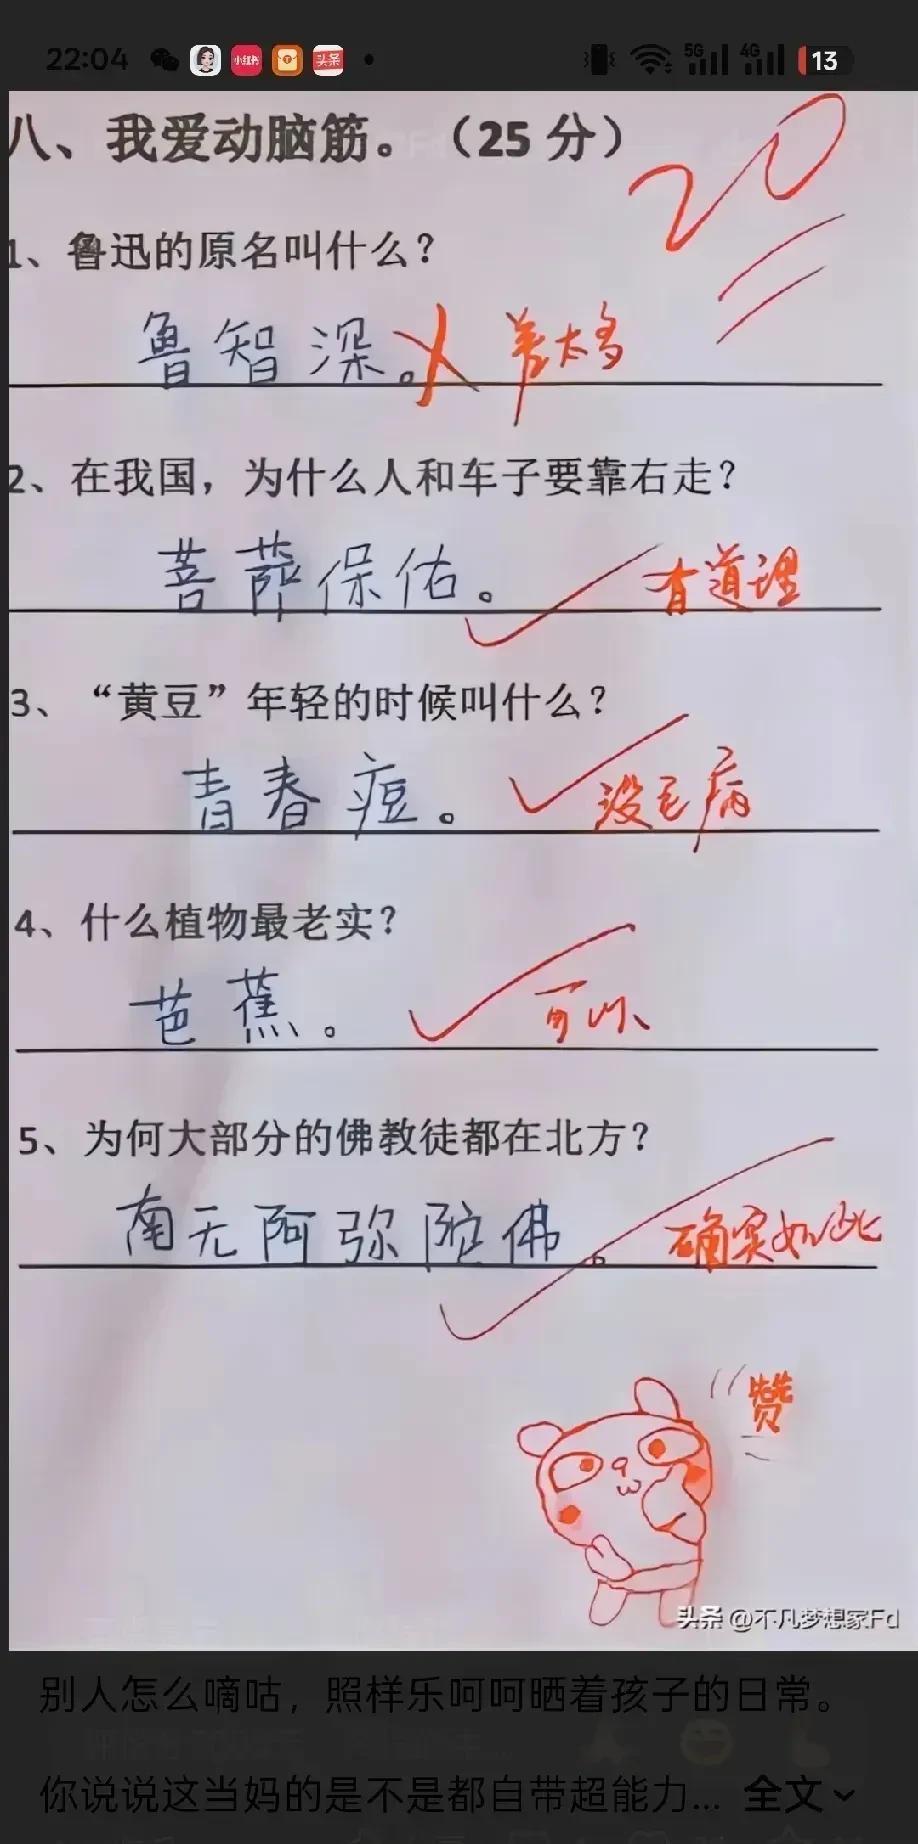 22:04 小红书 头条 5G 4G 13
八、我爱动脑筋。（25 分）
20
1、鲁迅的原名叫什么？
鲁智深。 差太多
2、在我国，为什么人和车子要靠右走？
菩萨保佑。 有道理
3、“黄豆”年轻的时候叫什么？
青春痘。 没毛病
4、什么植物最老实？
芭蕉。 可以
5、为何大部分的佛教徒都在北方？
南无阿弥陀佛。 确实如此
赞
头条 @不凡梦想家Fd
别人怎么嘀咕，照样乐呵呵晒着孩子的日常。
你说说这当妈的是不是都自带超能力... 全文